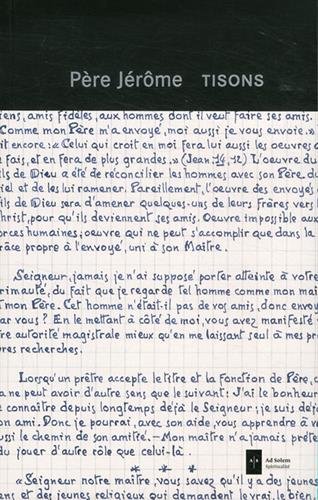 Père Jérôme TISONS
iens, amis fidèles, aux hommes dont il veut faire ses amis.
Comme mon Père m'a envoyé, moi aussi je vous envoie. »
it encore: « Celui qui croit en moi fera lui aussi les oeuvres
e fais, et en fera de plus grandes. » (Jean 14, 12) L'oeuvre du
ils de Dieu a été de réconcilier les hommes avec son Père du
iel et de les lui ramener. Pareillement, l'oeuvre des envoyés
ils de Dieu sera d'amener quelques-uns de leurs frères vers
hrist, pour qu'ils deviennent ses amis. Oeuvre impossible aux
orces humaines; oeuvre qui ne peut s'accomplir que dans la
râce propre à l'envoyé, uni à son Maître.
Seigneur, jamais je n'ai supposé porter atteinte à votre
rimauté, du fait que je regarde tel homme comme mon maî
t mon Père. Cet homme n'était-il pas de vos amis, donc envoy
ar vous? En le mettant à côté de moi, vous avez manifesté
tre autorité magistrale mieux qu'en me laissant seul à mes pr
vres recherches.
Lorsqu'un prêtre accepte le titre et la fonction de Père,
a ne peut avoir d'autre sens que le suivant: J'ai le bonheur
e connaître depuis longtemps déjà le Seigneur; je suis déjà
on ami. Donc je pourrai, avec son aide, vous apprendre à v
ussi le chemin de son amitié. – Mon maître n'a jamais préte
du jouer d'autre rôle que celui-là.
* * *
« Seigneur notre maître, vous savez qu'il y a des jeunes
ens et des jeunes religieux qui demandent le vrai, le bien,
Ad Solem
Spiritualité